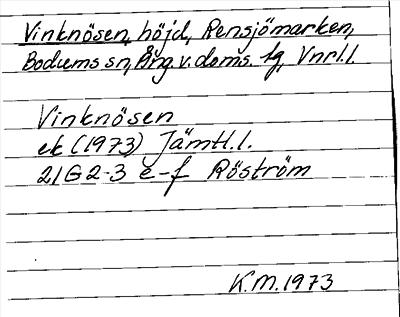 Vinknösen, höjd, Rensjömarken,
Bodums sn, Ång. v. doms. tg, Vnrl. l.
Vinknösen
ek (1973) Jämtl. l.
21G 2-3 e-f Röström
K.M. 1973